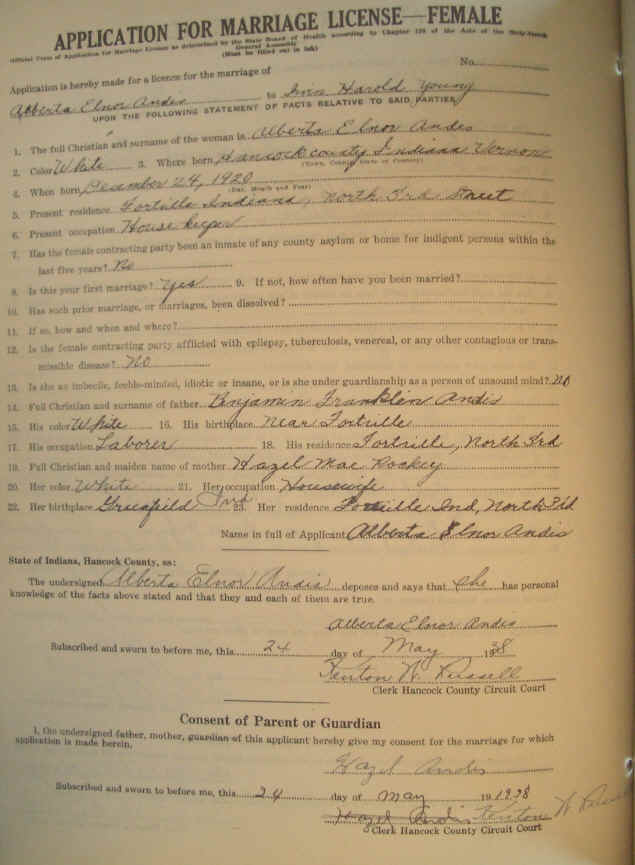 APPLICATION FOR MARRIAGE LICENSE—FEMALE
Official Form of Application for Marriage License as determined by the State Board of Health according to Chapter 126 of the Acts of the Sixty-
General Assembly
(Must be filled out in ink)
No.
Application is hereby made for a licence for the marriage of
Alberta Elnor Andis to Harold Young
UPON THE FOLLOWING STATEMENT OF FACTS RELATIVE TO SAID PARTIES
1. The full Christian and surname of the woman is Alberta Elnor Andis
2. Color White 3. Where born Hancock county Indiana Vernon
(Town, County, State or Country)
4. When born December 24, 1920
(Day, Month and Year)
5. Present residence Fortville Indiana, North 3rd Street
6. Present occupation House keeper
7. Has the female contracting party been an inmate of any county asylum or home for indigent persons within the
last five years? No
8. Is this your first marriage? Yes 9. If not, how often have you been married?
10. Has such prior marriage, or marriages, been dissolved?
11. If so, how and when and where?
12. Is the female contracting party afflicted with epilepsy, tuberculosis, venereal, or any other contagious or trans-
missible disease? NO
13. Is she an imbecile, feeble-minded, idiotic or insane, or is she under guardianship as a person of unsound mind? NO
14. Full Christian and surname of father Benjamin Franklin Andis
15. His color White 16. His birthplace Near Fortville
17. His occupation Laborer 18. His residence Fortville, North 3rd
19. Full Christian and maiden name of mother Hazel Mae Rockey
20. Her color White 21. Her occupation Housewife
22. Her birthplace Greenfield Ind 23. Her residence Fortville Ind, North 3rd
Name in full of Applicant Alberta Elnor Andis
State of Indiana, Hancock County, ss:
The undersigned Alberta Elnor Andis deposes and says that She has personal
knowledge of the facts above stated and that they and each of them are true.
Alberta Elnor Andis
Subscribed and sworn to before me, this 24 day of May 1938
Fenton W. Russell
Clerk Hancock County Circuit Court
Consent of Parent or Guardian
I, the undersigned father, mother, guardian of this applicant hereby give my consent for the marriage for which
application is made herein.
Hazel Andis
Subscribed and sworn to before me, this 24 day of May 19 1938
Hazel Andis Fenton W Russell
Clerk Hancock County Circuit Court